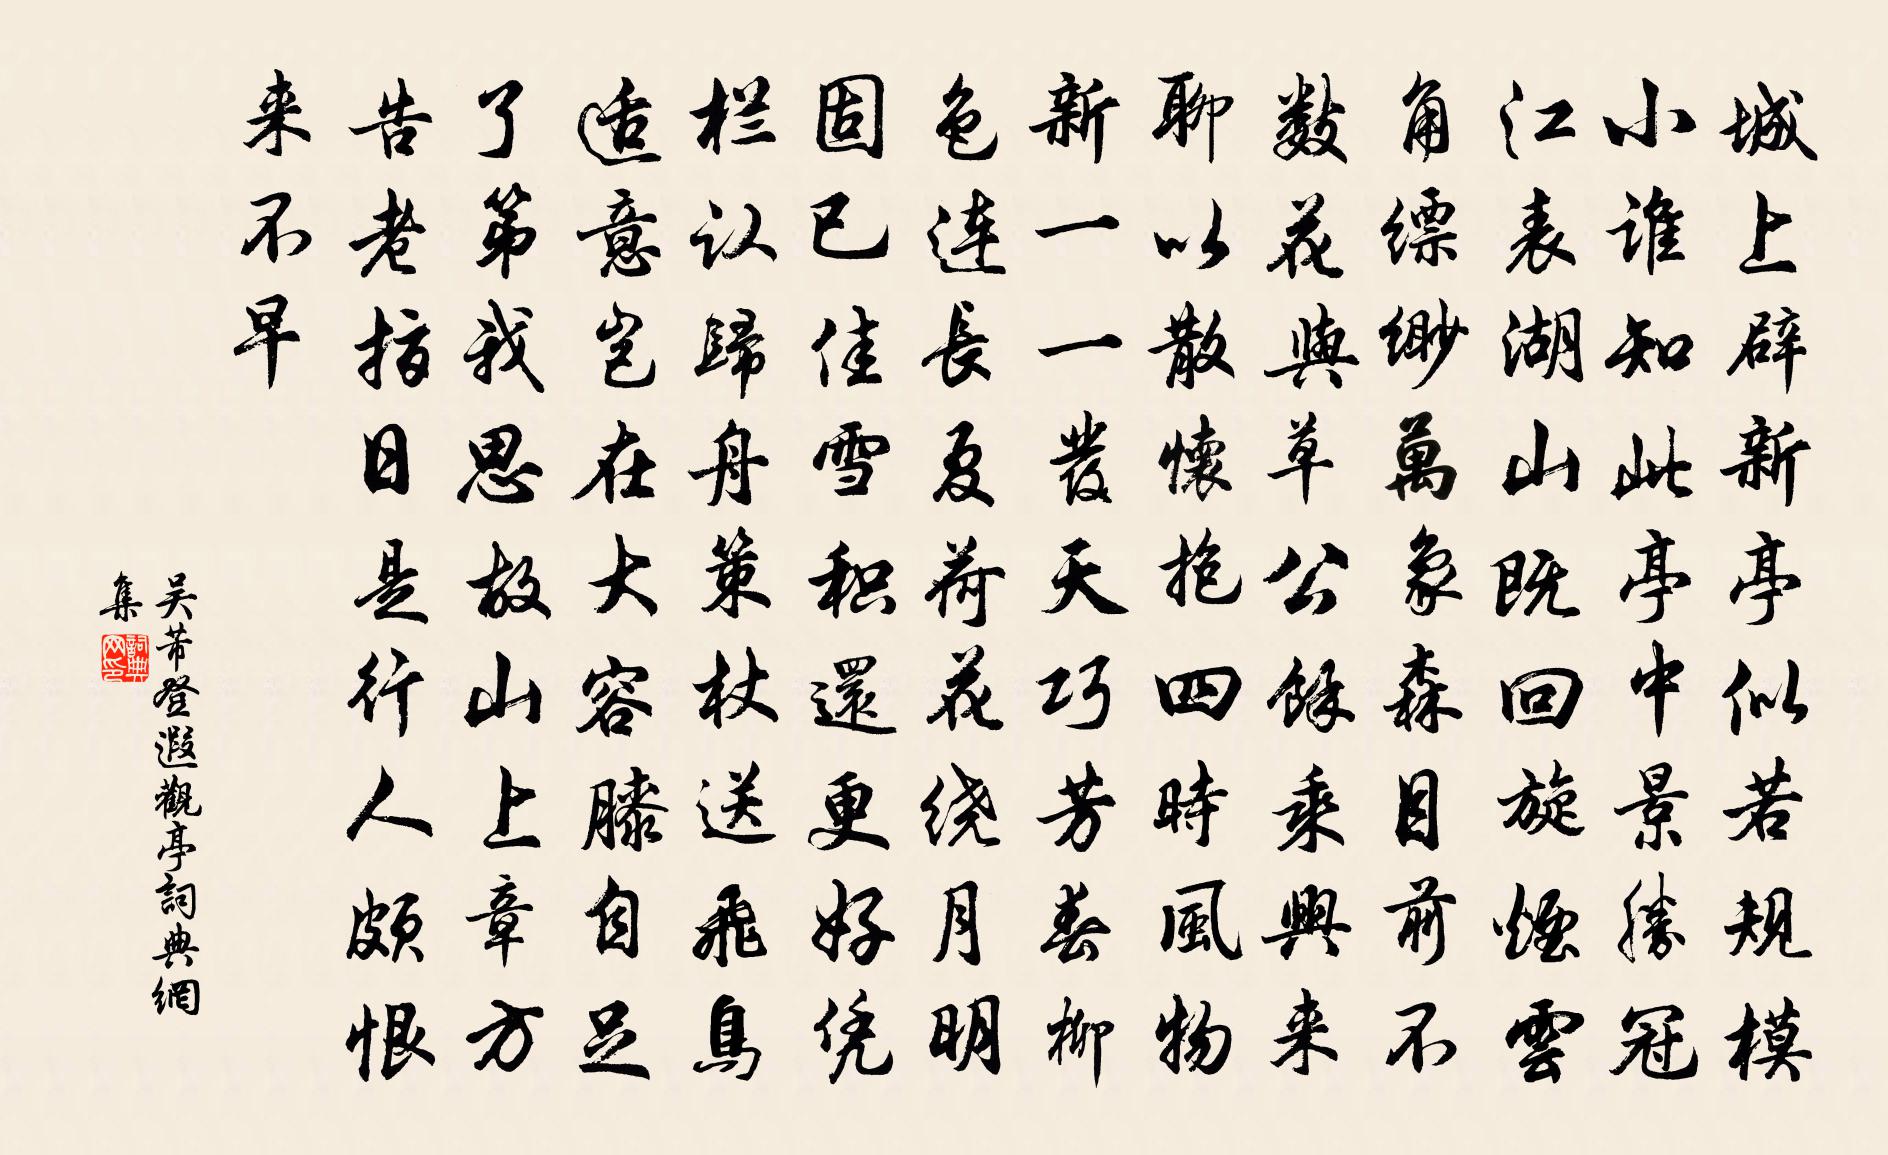 城上辟新亭似若規模
小誰知此亭中景勝冠
江表湖山既回旋煙雲
角缥缈萬象森目前不
數花與草公餘乘興来
聊以散懷抱四時風物
新一一發天巧芳春柳
色連長夏荷花绕月明
固已佳雪积還更好凭
栏认歸舟策杖送飛鳥
适意岂在大容膝自足
了第我思故山上章方
告老指日是行人頗恨
来不早
吴芾登遐觀亭詞典網
集
詞典网印